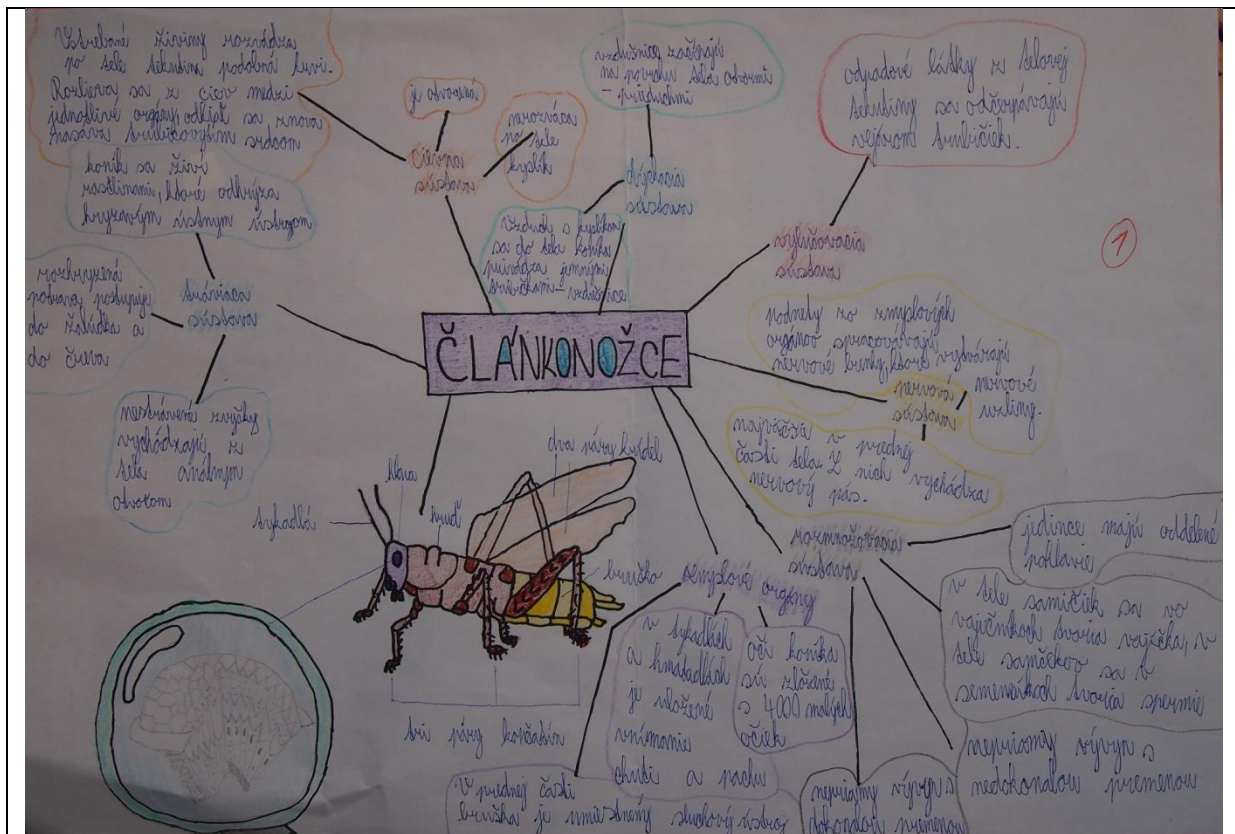 Vstrebané živiny rozvádza
po tele tekutina podobná krvi.
Rozlieva sa z ciev medzi
jednotlivé orgány, odkiaľ sa znova
nasáva trubicovitým srdcom
je otvorená
nerozváca
po tele
kyslík
cievna
sústava
vzdušnice začínajú
na povrchu tela otvormi
– prieduchmi
dýchacia
sústava
Vzduch s kyslíkom
sa do tela koníka
privádza jemnými
trubičkami – vzdušnice
odpadové látky z telovej
tekutiny sa odčerpávajú
vejárom trubičiek.
vylučovacia
sústava
1
koník sa živí
rastlinami, ktoré odhrýza
hryzavým ústnym ústrojom
rozhryzená
potrava postupuje
do žalúdka a
do čreva
tráviaca
sústava
nestrávené zvyšky
vychádzajú z
tela análnym
otvorom
ČLÁNKONOŽCE
podnety zo zmyslových
orgánov spracovávajú
nervové bunky, ktoré vytvárajú
nervové
uzliny.
nervová
sústava
najväčšie v prednej
časti tela. Z nich vychádza
nervový pás.
hlava
tykadlá
hruď
dva páry krídel
bruško
tri páry končatín
zmyslové orgány
v tykadlách
a hmatadlách
je uložené
vnímanie
chuti a pachu
oči koníka
sú zložené
s 4000 malých
očiek
V prednej časti
bruška je umiestnený sluchový ústroj
rozmnožovacia
sústava
jedince majú oddelené
pohlavie
v tele samičiek sa vo
vaječníkoch tvoria vajíčka, v
tele samčekov sa v
semenníkoch tvoria spermie
nepriamy vývyn s
nedokonalou premenou
nepriamy vývyn s
dokonalou premenou